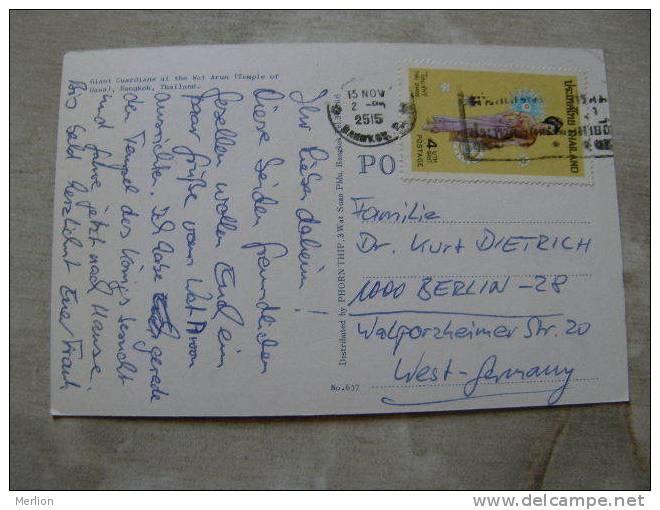 Giant Guardians at the Wat Arun (Temple of
Dawn), Bangkok, Thailand.
Ihr Lieben daheim!
Diese beiden freundlichen
Gesellen wollen Euch ein
paar Grüße vom Wat Arun
ausrichten. Ich habe gerade
den Tempel des Königs besucht
und fahre jetzt nach Hause.
Bis bald herzlichst Euer Frank
Distributed by PHORN THIP. 3 Wat Suan Plu, Bangkok
No. 637
PO
15 NOV
2
2515
BANGKOK
ประเทศไทย THAILAND
4 บาท
BAHT
POSTAGE
Familie
Dr. Kurt DIETRICH
1000 BERLIN-28
Walporzheimer Str. 20
West-Germany
Merlion
http://www.delcampe.net